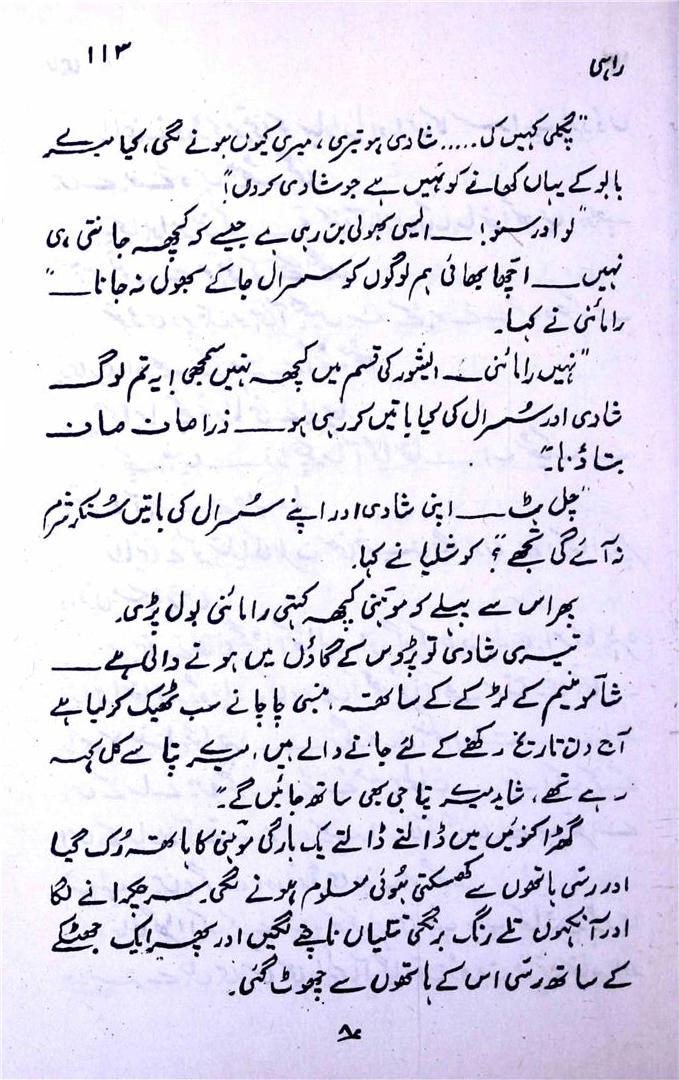 راہی ۱۱۳
"پگلی کہیں کی..... شادی ہو تیری، میری کیوں ہونے لگی، کیا میرے
بابو کے یہاں کھانے کو نہیں ہے جو شادی کردوں؟"
"لو اور سنو! — ایسی بھولی بن رہی ہے جیسے کہ کچھ جانتی ہی
نہیں — اچھا بھائی ہم لوگوں کو سسرال جا کے بھول نہ جانا —"
رامائنی نے کہا۔
"نہیں رامائنی — ایشور کی قسم میں کچھ نہیں سمجھی! یہ تم لوگ
شادی اور سُسرال کی کیا باتیں کر رہی ہو — ذرا صاف صاف
بتاؤ نا۔"
"چل ہٹ — اپنی شادی اور اپنے سُسرال کی باتیں سُنکر شرم
نہ آئے گی تجھے"؟ کوشلیا نے کہا۔
پھر اس سے پہلے کہ موہنی کچھ کہتی رامائنی بول پڑی۔
تیری شادی تو پڑوس کے گاؤں میں ہونے والی ہے —
شامو منیم کے لڑکے کے ساتھ، منسی چاچا نے سب ٹھیک کر لیا ہے
آج دن تاریخ رکھنے کے لئے جانے والے ہیں، میرے پتا سے کل کہہ
رہے تھے، شاید میرے پتا جی بھی ساتھ جائیں گے۔"
گھڑا کنوئیں میں ڈالتے ڈالتے یک بارگی موہنی کا ہاتھ رُک گیا
اور رسی ہاتھوں سے کھسکتی ہوئی معلوم ہونے لگی۔ سر چکرانے لگا
اور آنکھوں تلے رنگ برنگی تتلیاں ناچنے لگیں اور پھر ایک جھٹکے
کے ساتھ رسّی اس کے ہاتھوں سے چھوٹ گئی۔